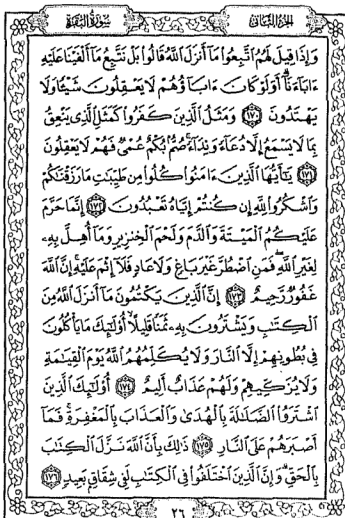 الجزء الثاني
سورة البقرة
وَإِذَا قِيلَ لَهُمُ اتَّبِعُوا مَا أَنزَلَ اللَّهُ قَالُوا بَلْ نَتَّبِعُ مَا أَلْفَيْنَا عَلَيْهِ
ءَابَاءَنَا أَوَلَوْ كَانَ ءَابَاؤُهُمْ لَا يَعْقِلُونَ شَيْئًا وَلَا
يَهْتَدُونَ ١٧٠ وَمَثَلُ الَّذِينَ كَفَرُوا كَمَثَلِ الَّذِى يَنْعِقُ
بِمَا لَا يَسْمَعُ إِلَّا دُعَاءً وَنِدَاءً صُمٌّ بُكْمٌ عُمْىٌ فَهُمْ لَا يَعْقِلُونَ
١٧١ يَٰأَيُّهَا الَّذِينَ ءَامَنُوا كُلُوا مِن طَيِّبَٰتِ مَا رَزَقْنَٰكُمْ
وَاشْكُرُوا لِلَّهِ إِن كُنتُمْ إِيَّاهُ تَعْبُدُونَ ١٧٢ إِنَّمَا حَرَّمَ
عَلَيْكُمُ الْمَيْتَةَ وَالدَّمَ وَلَحْمَ الْخِنزِيرِ وَمَا أُهِلَّ بِهِ
لِغَيْرِ اللَّهِ فَمَنِ اضْطُرَّ غَيْرَ بَاغٍ وَلَا عَادٍ فَلَا إِثْمَ عَلَيْهِ إِنَّ اللَّهَ
غَفُورٌ رَّحِيمٌ ١٧٣ إِنَّ الَّذِينَ يَكْتُمُونَ مَا أَنزَلَ اللَّهُ مِنَ
الْكِتَٰبِ وَيَشْتَرُونَ بِهِ ثَمَنًا قَلِيلًا أُولَٰئِكَ مَا يَأْكُلُونَ
فِى بُطُونِهِمْ إِلَّا النَّارَ وَلَا يُكَلِّمُهُمُ اللَّهُ يَوْمَ الْقِيَٰمَةِ
وَلَا يُزَكِّيهِمْ وَلَهُمْ عَذَابٌ أَلِيمٌ ١٧٤ أُولَٰئِكَ الَّذِينَ
اشْتَرَوُا الضَّلَٰلَةَ بِالْهُدَىٰ وَالْعَذَابَ بِالْمَغْفِرَةِ فَمَا
أَصْبَرَهُمْ عَلَى النَّارِ ١٧٥ ذَٰلِكَ بِأَنَّ اللَّهَ نَزَّلَ الْكِتَٰبَ
بِالْحَقِّ وَإِنَّ الَّذِينَ اخْتَلَفُوا فِى الْكِتَٰبِ لَفِى شِقَاقٍ بَعِيدٍ ١٧٦
٢٦